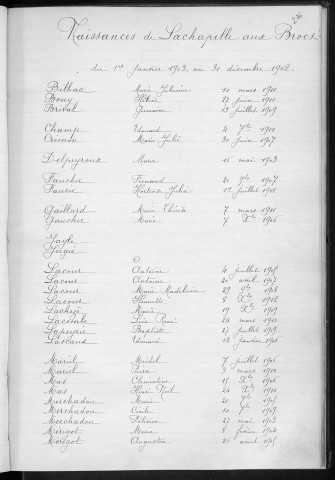 Naissances de Lachapelle aux Brocs
du 1er Janvier 1903, au 31 décembre 1912.
Bilhac Marie 10 mars 1911
Bouy 27 juin 1910
Breval Germaine 13 juillet 1909
Champ Edouard 4 7bre 1910
Cremon Marie Julie 30 juin 1907
Delpeyroux Marie 15 mai 1903
Fauche Fernand 20 9bre 1907
Faurie Julia 1er juillet 1911
Gaillard Marie Thérèse 7 mars 1911
Gaucher Marie 7 Xbre 1906
Lacour Antoine 4 juillet 1905
Lacour Antoine 20 avril 1907
Lacour Marie Madeleine 29 9bre 1908
Lacour 8 Xbre 1912
Marie 19 Xbre 1909
Lacombe René 24 mars 1910
Lapeyre Baptiste 27 juillet 1909
Lascaux Edouard 12 janvier 1906
Maruel Michel 7 juillet 1906
Maruel Pierre 9 mars 1910
Mas Clémentine 15 Xbre 1906
Mas Henri Noël 24 Xbre 1910
Merchadou Marie 21 7bre 1905
Merchadou Cécile 10 7bre 1909
Merchadou 27 mai 1903
Merigot Marie 8 février 1904
Merigot Augustin 21 avril 1905